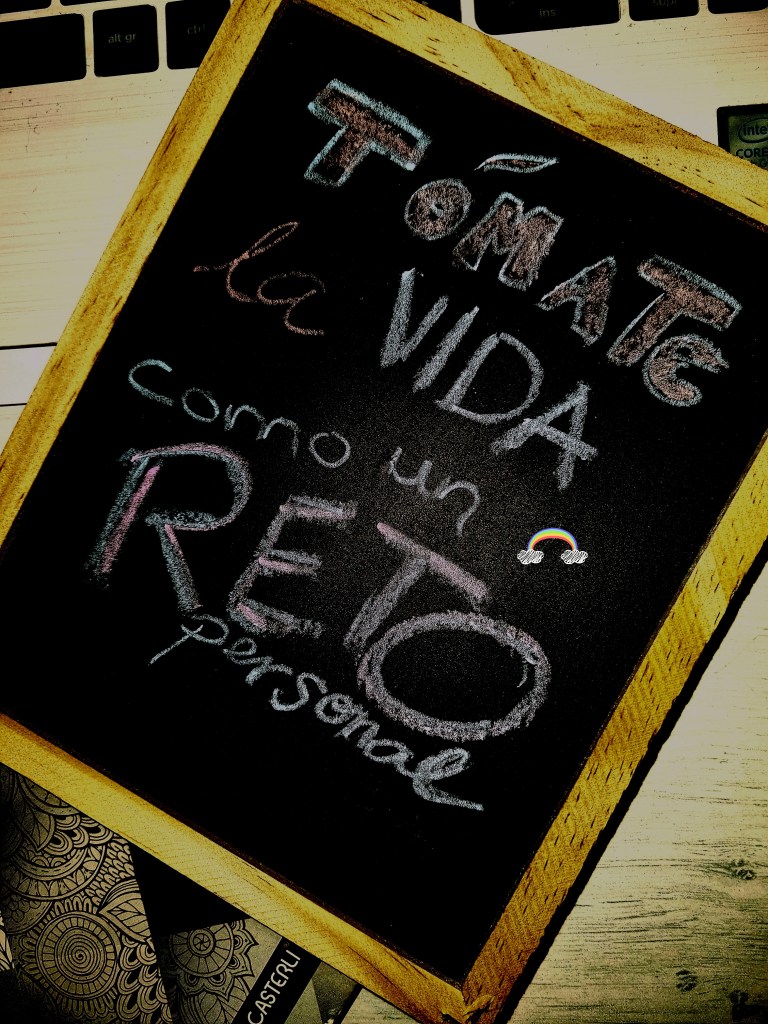 alt gr
ctr
ins
supr
intel
CORE
TÓMATE
la VIDA
como un
RETO
personal
CASTERLI